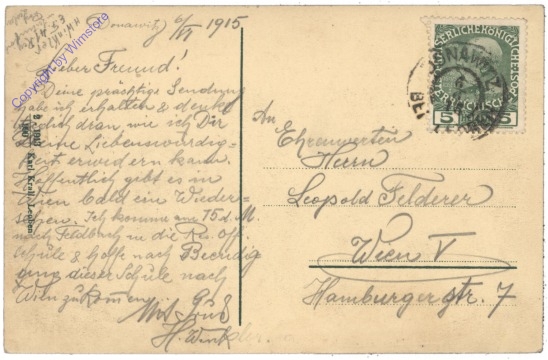 Donawitz 6/VI 1915
Lieber Freund!
Deine prächtige Sendung
habe ich erhalten & denke
dran, wie ich Dir
Deine Liebenswürdig-
keit erwidern kann.
Hoffentlich gibt es in
Wien bald ein Wieder-
sehen. Ich komme am 15. d. M.
nach Feldbach in die Res. Off.
Schule & hoffe nach Beendig
gung dieser Schule nach
Wien zu kommen.
Mit Gruß
H. Winkler
An
Ehrenwerten
Herrn
Leopold Felderer
Wien V
Hamburgerstr. 7
Karl Krall, Leoben
1913
DONAWITZ
BEI LEOBEN
5 5
Copyright by Wimstore